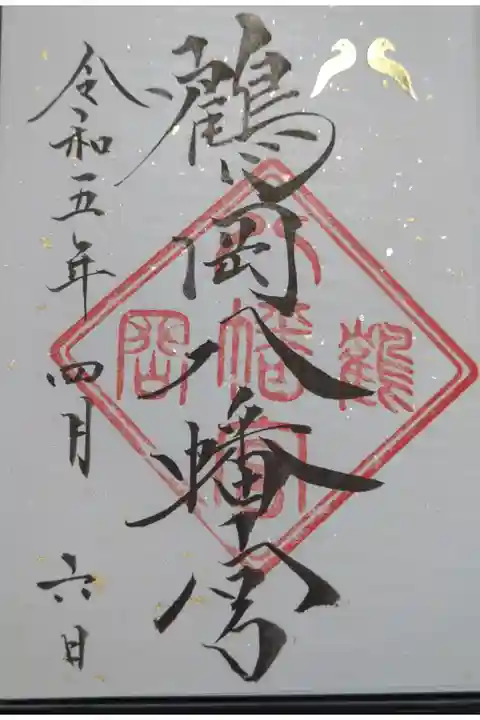 鶴岡八幡宮
鶴
八幡宮
岡
令和五年四月六日